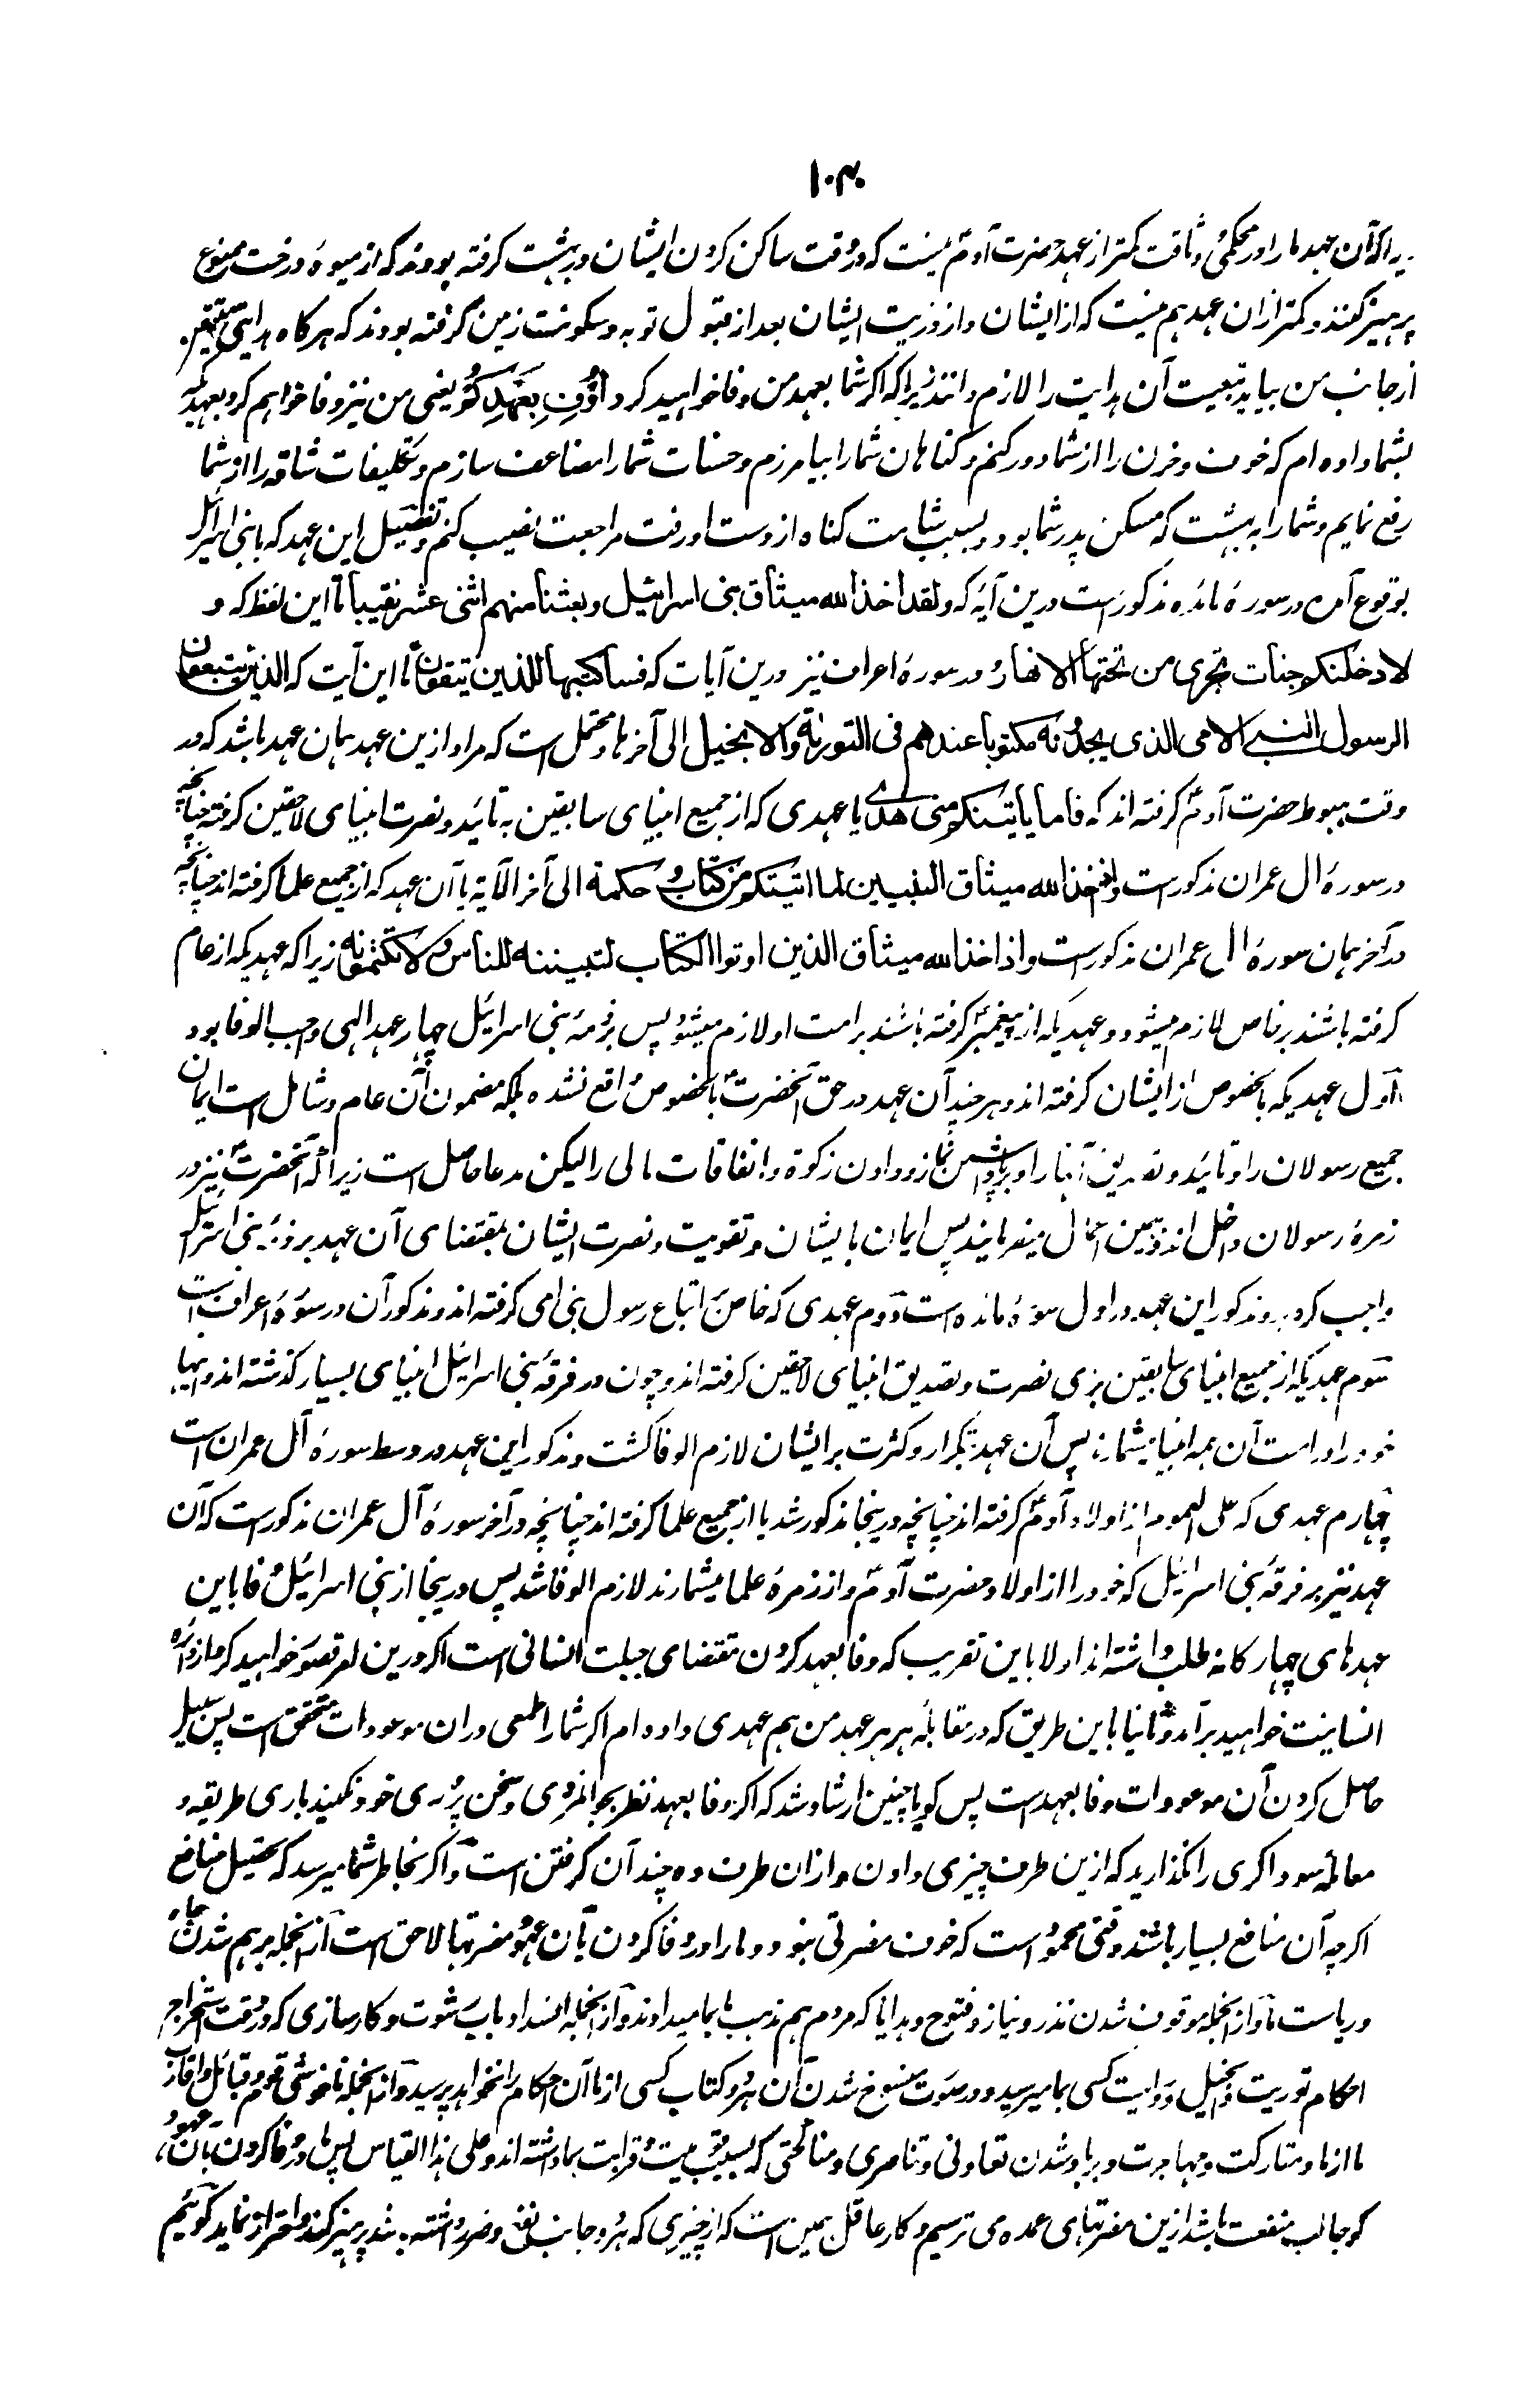 ۱۰۴۰
آن عهدها را در محکمی وثاقت کمتر از عهد حضرت آدمؑ نیست که در وقت ساکن کردن ایشان در بهشت گرفته بودند که از میوهٔ درخت ممنوع
پرهیز کنند و کمتر ازان عهد هم نیست که از ایشان و از ذریت ایشان بعد از قبول توبه و سکونت زمین گرفته بودند که هرگاه هدایتی
از جانب من بیاید تبعیت آن هدایت را لازم دانند زیرا که اگر شما بعهد من وفا خواهید کرد اُوْفِ بِعَهْدِكُمْ یعنی من نیز وفا خواهم کرد بعهدیکه
بشما داده ام که خوف و حزن را از شما دور کنم و گناهان شما را بیامرزم و حسنات شما را مضاعف سازم و تکلیفات شاقه را از شما
رفع نمایم و شما را به بهشت که مسکن پدر شما بود و بسبب شامت گناه از دست او رفت مراجعت نصیب کنم و تفصیل این عهد که با بنی اسرائیل
بوقوع آمده در سورهٔ مائده مذکور است درین آیه که ولقد اخذ الله میثاق بنی اسرائیل وبعثنا منهم اثنی عشر نقیبا تا این لفظ که و
لادخلنکم جنات تجری من تحتها الانهار و در سورهٔ اعراف نیز درین آیات که فساکتبها للذین یتقون تا این آیت که الذین یتبعون
الرسول النبی الامی الذی یجدونه مکتوبا عندهم فی التوریة والانجیل الی آخرها و محتمل است که مراد ازین عهد همان عهد باشد که در
وقت هبوط حضرت آدمؑ گرفته اند که فاما یاتینکم منی هدی یا عهدی که از جمیع انبیای سابقین به تائید و نصرت انبیای لاحقین گرفته چنانچه
در سورهٔ ال عمران مذکور است واذ اخذ الله میثاق النبیین لما اتیتکم من کتاب و حکمة الی آخر الآیة یا آن عهد که از جمیع علما گرفته اند چنانچه
در آخر همان سورهٔ ال عمران مذکور است واذ اخذ الله میثاق الذین اوتوا الکتاب لتبیننه للناس ولا تکتمونه زیرا که عهدیکه از عام
گرفته باشند بر خاص لازم میشود و عهدیکه از پیغمبر گرفته باشند بر امت او لازم میشود پس بر ذمهٔ بنی اسرائیل چهار عهد الهی واجب الوفا بود
اول عهدیکه بالخصوص از ایشان گرفته اند و هر چند آن عهد در حق آنحضرتؐ بالخصوص واقع نشده بلکه مضمون آن عام و شامل است ایمان
جمیع رسولان را و تائید و تصدیق آنها را و برپا داشتن نماز و دادن زکوة و انفاقات مالی را لیکن مدعا حاصل است زیرا که آنحضرتؐ نیز در
زمرهٔ رسولان داخل اند و همین میفرمایند پس ایمان بایشان و تقویت و نصرت ایشان بمقتضای آن عهد بر ذمهٔ بنی اسرائیل
واجب کرد و مذکور این عهد در اول سورهٔ مائده است دوم عهدی که خاص اتباع رسول نبی امی گرفته اند و مذکور آن در سورهٔ اعراف است
سوم عهدیکه از جمیع انبیای سابقین بزی نصرت و تصدیق انبیای لاحقین گرفته اند و چون در فرقهٔ بنی اسرائیل انبیای بسیار گذشته اند و اینها
خود را در امت آن همه انبیا میشمارند پس آن عهد بتکرار و کثرت بر ایشان لازم الوفا گشت و مذکور این عهد در وسط سورهٔ آل عمران است
چهارم عهدی که علی العموم از اولاد آدمؑ گرفته اند چنانچه درینجا مذکور شد یا از جمیع علما گرفته اند چنانچه در آخر سورهٔ آل عمران مذکور است که آن
عهد نیز بر فرقهٔ بنی اسرائیل که خود را از اولاد حضرت آدمؑ و از زمرهٔ علما میشمارند لازم الوفا شد پس درینجا از بنی اسرائیل وفا باین
عهدهای چهارگانه طلب داشته اند اولا باین تقریب که وفا بعهد کردن مقتضای جبلت انسانی است اگر درین امر قصور خواهید کرد از دائره
انسانیت خواهید برآمد و ثانیا باین طریق که در مقابلهٔ هر هر عهد من هم عهدی داده ام اگر شما را طمعی دران موعودات متحقق است پس سبیل
حاصل کردن آن موعودات وفا بعهد است پس گویا چنین ارشاد شد که اگر وفا بعهد نظر بجوانمردی و سخن پروری خود نکنید باری طریقه و
معاملهٔ سوداگری را نگذارید که ازین طرف چیزی دادن و ازان طرف ده چند آن گرفتن است و اگر بخاطر شما میرسد که تحصیل منافع
اگرچه آن منافع بسیار باشند وقتی محمود است که خوف مضرتی نبود و ما را در وفا کردن بآن عهود مضرتها لاحق است ازانجمله برهم شدن جاه
و ریاست ما و ازانجمله موقوف شدن نذر و نیاز و فتوح و هدایا که مردم هم مذهب ما بما میدادند و ازانجمله انسداد باب رشوت و کارسازی که در وقت استخراج
احکام توریت و انجیل و روایت کسی بما میرسید و در صورت منسوخ شدن آن هر دو کتاب کسی از ما آن احکام را نخواهد پرسید و ازانجمله ناخوشی قوم و قبائل و اقارب
ما از ما و متارکت و مهاجرت و برباد شدن تعاونی و تناصری و مناکحتی که بسبب قومیت و قرابت بما داشته اند و علی هذا القیاس پس ما در وفا کردن بآن عهود
گو جالب منفعت باشد ازین مضرتهای عمده می ترسیم و کار عاقل همین است که از چیزی که هر دو جانب نفع و ضرر داشته باشد پرهیز کند و احتراز نماید گوئیم